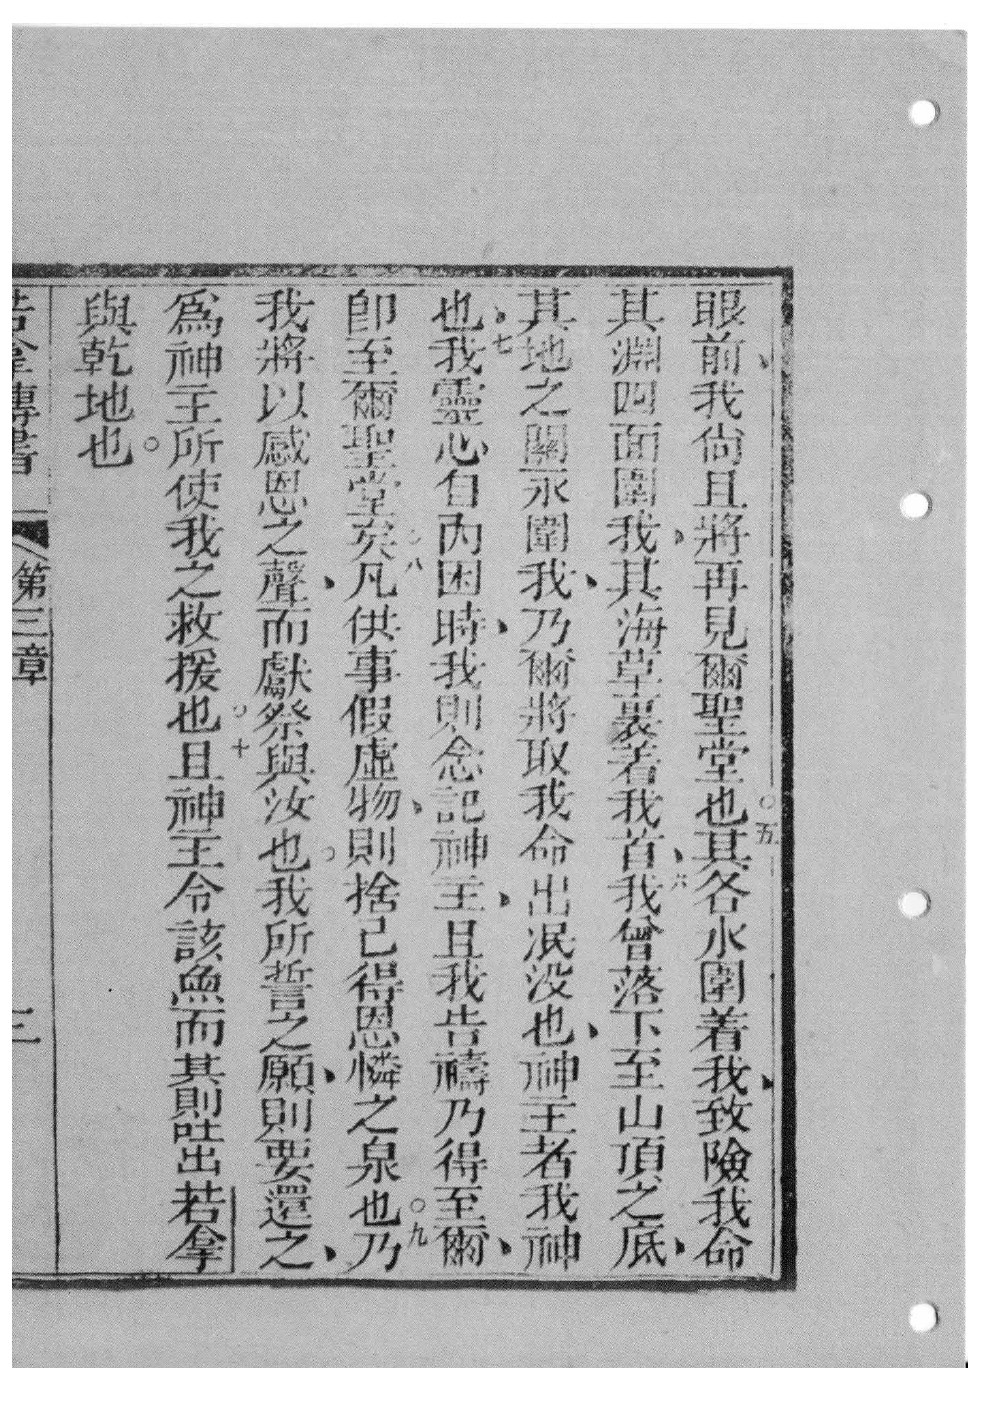 眼前、我尚且將再見爾聖堂也。五其各水圍着我、致險我命
其淵四面圍我、其海草裹着我首、六我曾落下至山頂之底、
其地之關永圍我、乃爾將取我命出泯没也、神主者我神
也、七我靈心自內困時、我則念記神主、且我告禱乃得至爾、
即至爾聖堂矣。八凡供事假虛物、則捨己得恩憐之泉也。九乃
我將以感恩之聲、而獻祭與汝也。我所誓之願、則要還之、
爲神主所使我之救援也。十且神主令該魚而其則吐出若拿
與乾地也。
若拿傳書 第三章 三